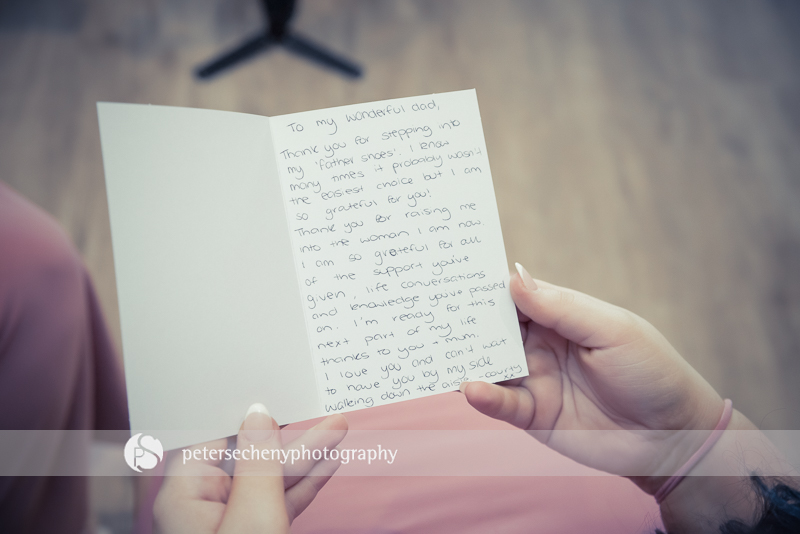 To my wonderful dad,
Thank you for stepping into
my 'father shoes'. I know
many times it probably wasn't
the easiest choice but I am
so grateful for you!
Thank you for raising me
into the woman I am now.
I am so grateful for all
of the support you've
given, life conversations
and knowledge you've passed
on. I'm ready for this
next part of my life
thanks to you + mum.
I love you and can't wait
to have you by my side
walking down the aisle -courty
xx
PS petersechenyphotography